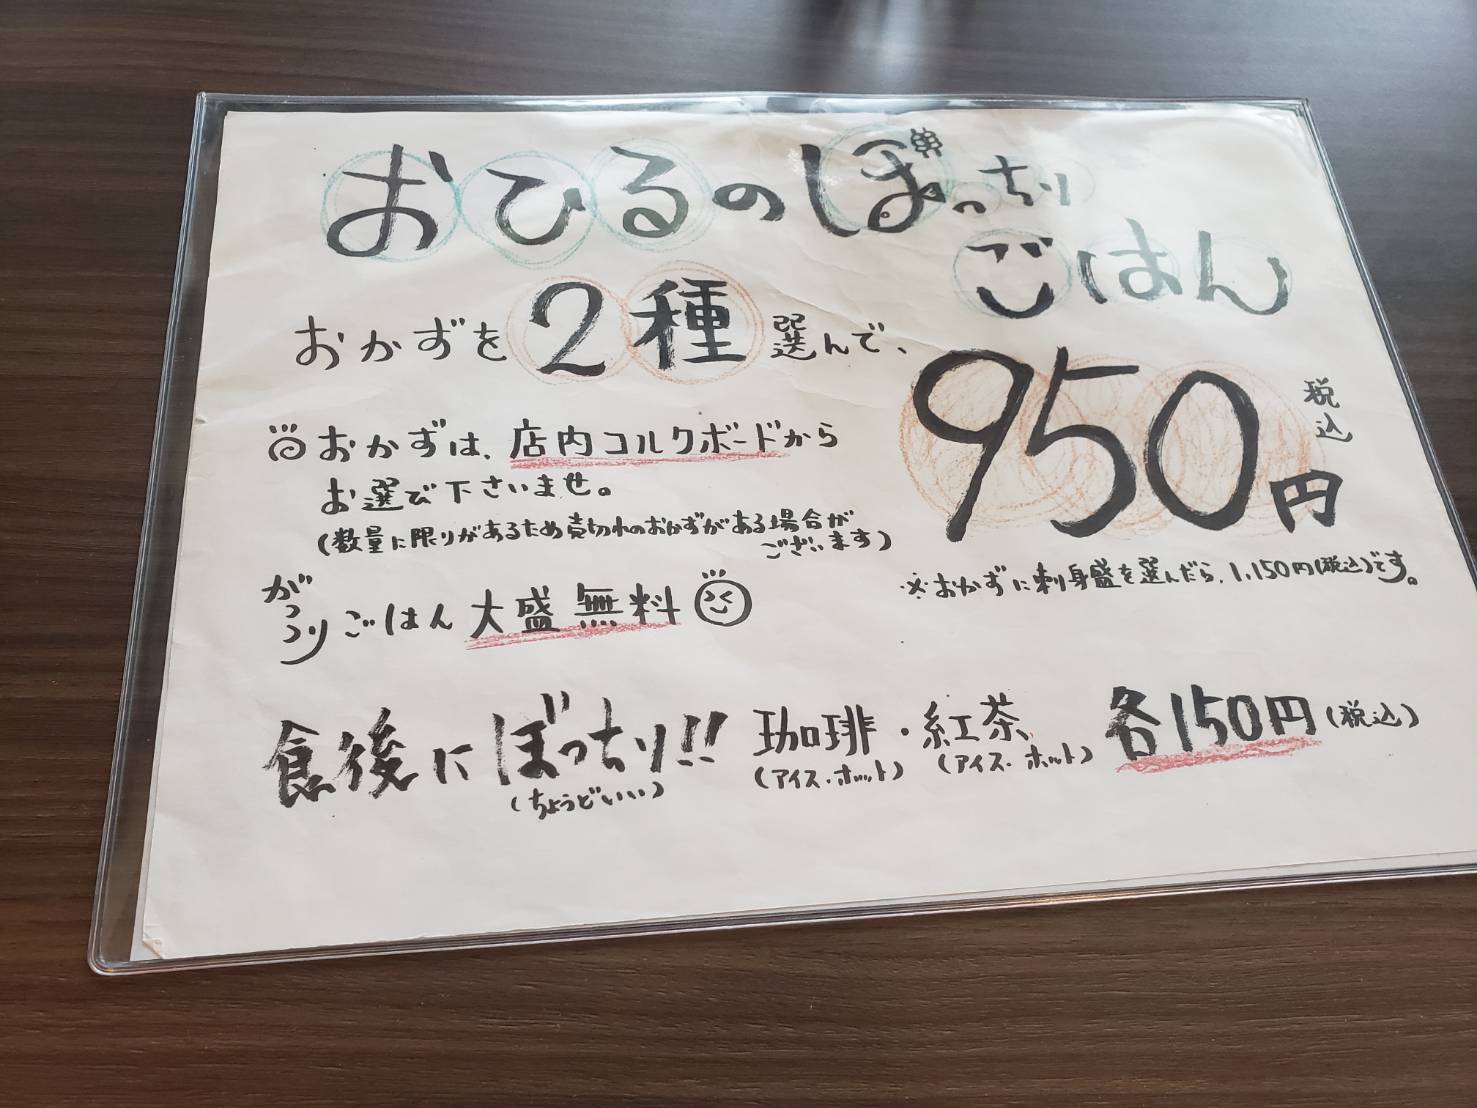 おひるのぼっちり
ごはん
おかずを2種選んで、
950円
税込
おかずは、店内コルクボードから
お選び下さいませ。
(数量に限りがあるため売切れのおかずがある場合が
ございます)
※おかずに刺身盛を選んだら、1,150円(税込)です。
がっつりごはん大盛無料
食後にぼっちり!! 珈琲・紅茶 各150円(税込)
(ちょうどいい) (アイス・ホット) (アイス・ホット)